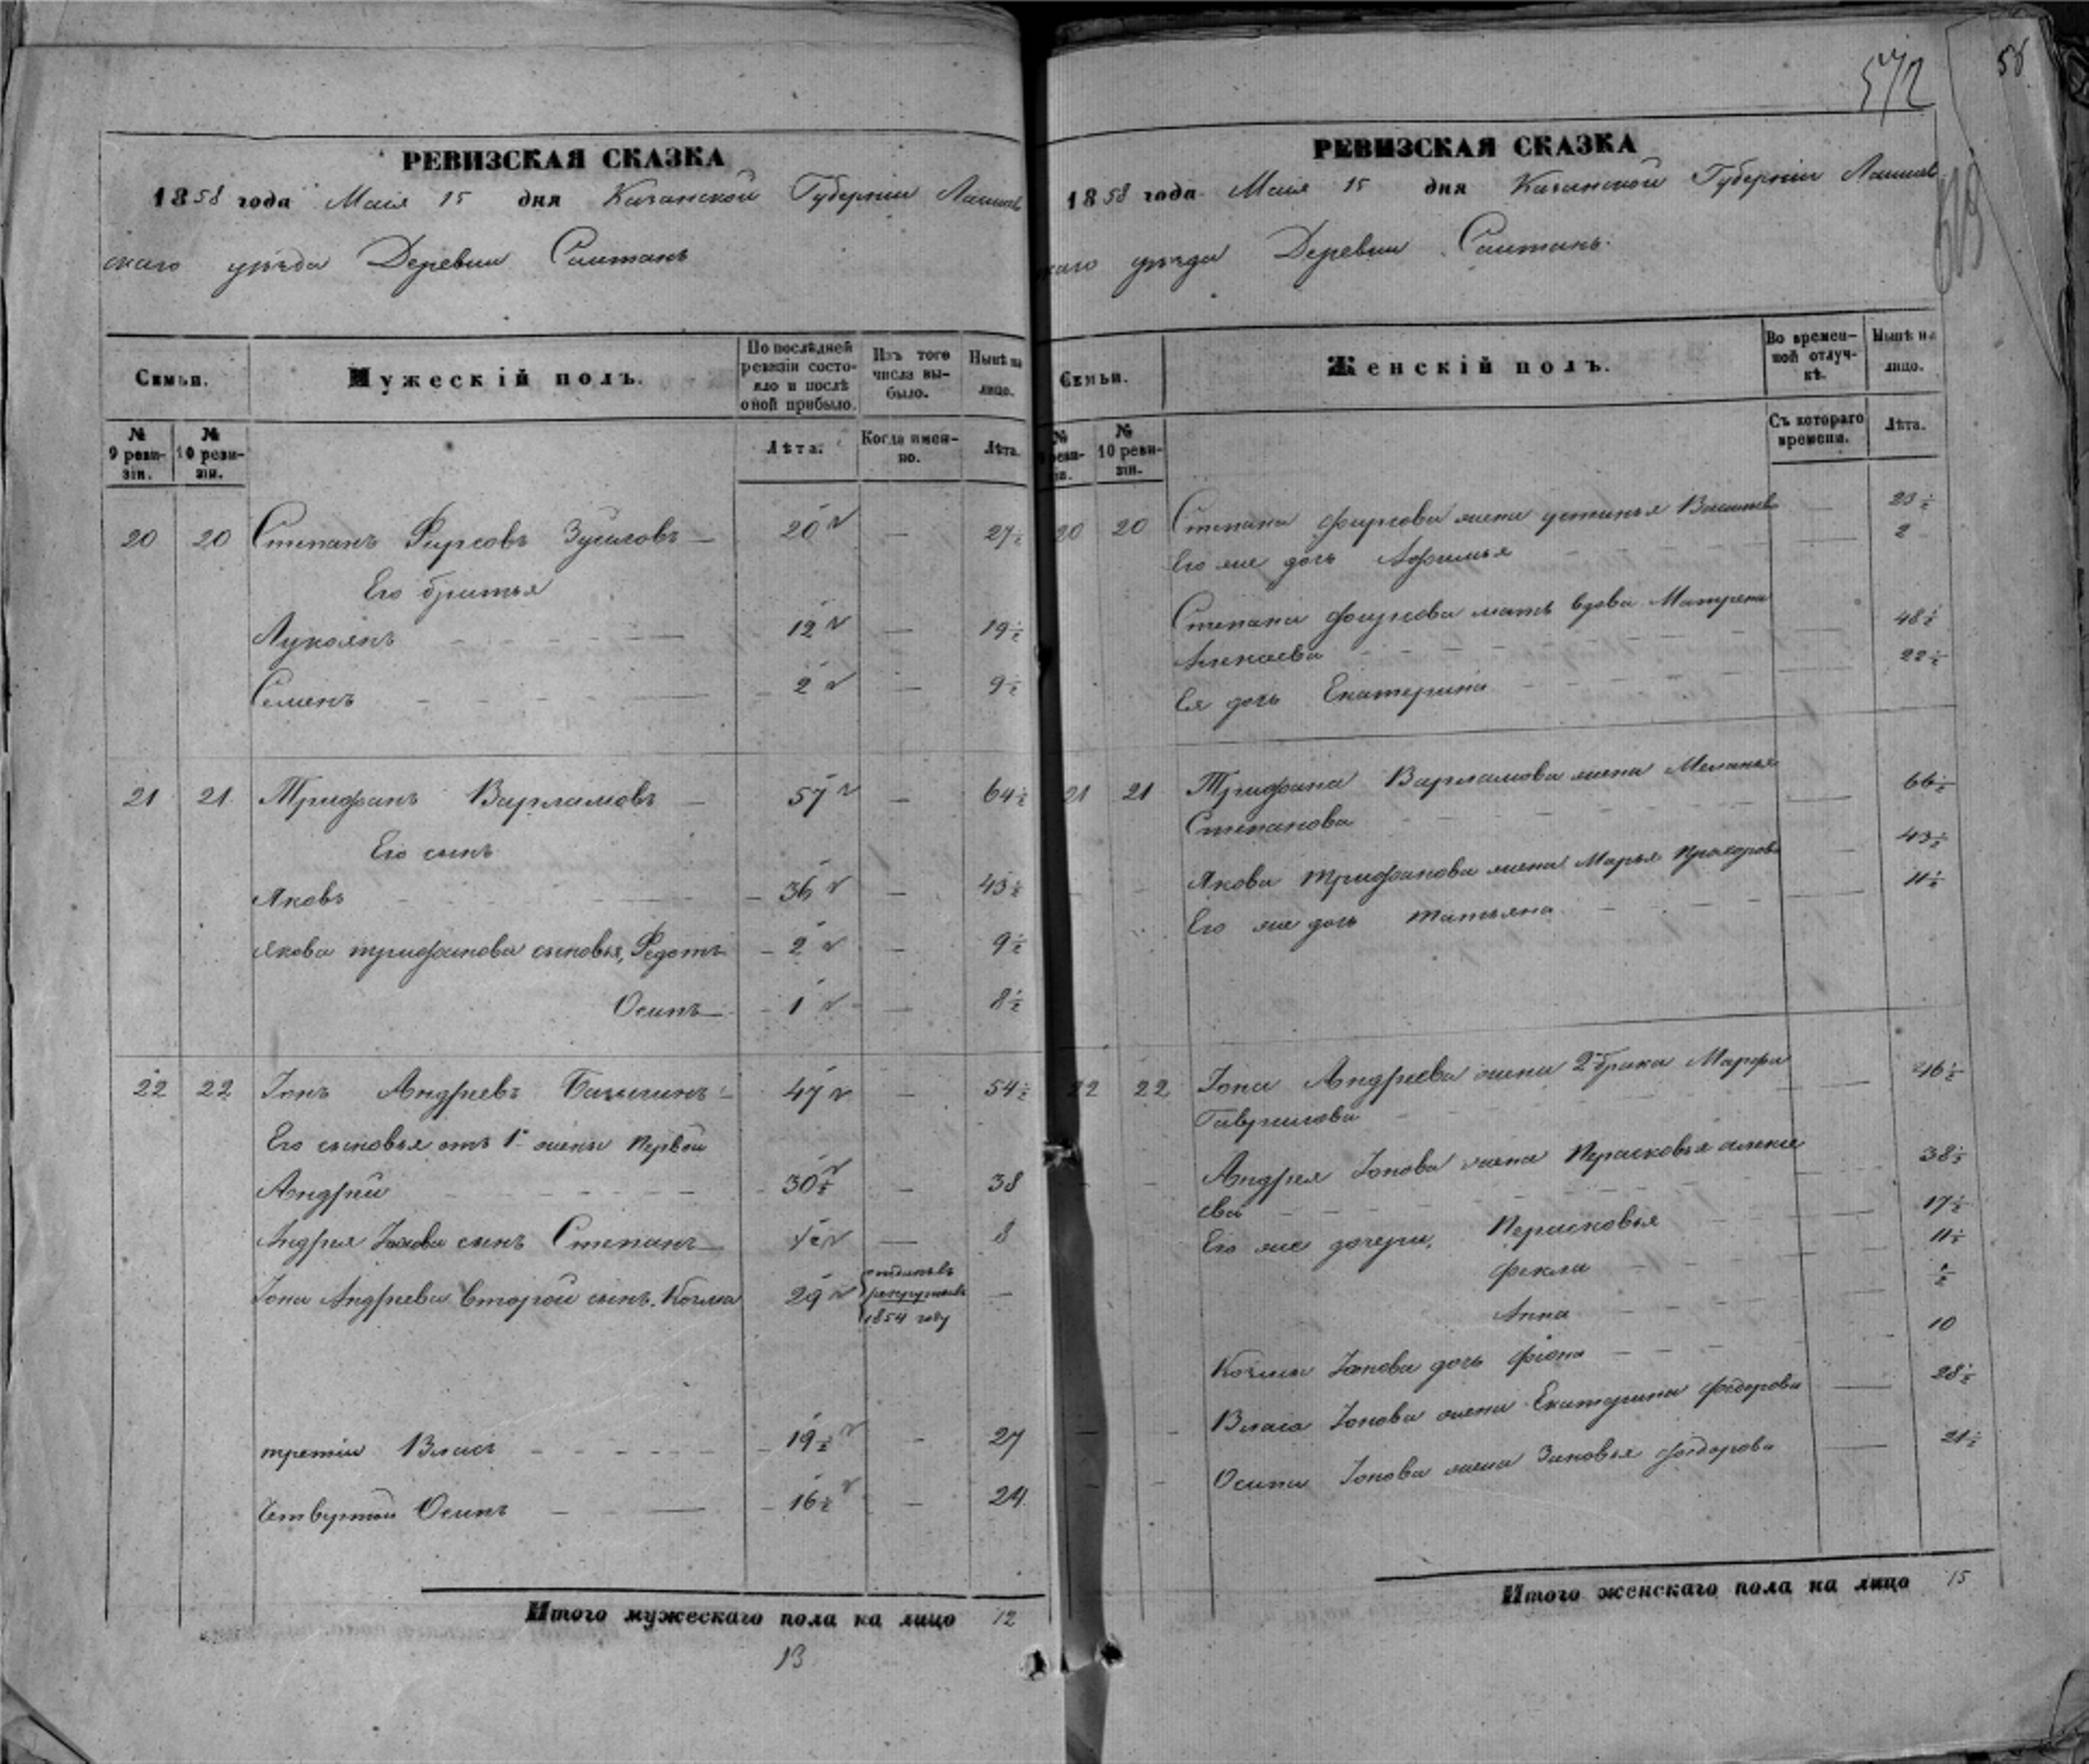 РЕВИЗСКАЯ СКАЗКА
1858 года Маія 15 дня Казанской Губерніи Лаишев
скаго уѣзда Деревни Саитанъ
Семьи. Мужескій полъ. По послѣдней ревизіи состояло и послѣ оной прибыло. Изъ того числа выбыло. Нынѣ на лицо.
№ 9 ревизіи. № 10 ревизіи. Лѣта. Когда именно. Лѣта.
20 20 Степанъ Фирсовъ 20 — 27½
Его братья
Лукоянъ 12 — 19½
Семенъ 2 — 9½
21 21 Трифанъ Варламовъ — 57 — 64½
Его сынъ
Яковъ 36 — 43½
Якова трифанова сыновья, Федотъ 2 — 9½
Осипъ 1 — 8½
22 22 Іонъ Андреевъ 47 — 54½
Его сыновья отъ 1й жены Первой
Андрей 30½ — 38
Андрея Іонова сынъ Степанъ ½ — 8
Іона Андреева Второй сынъ Козма 29 отданъ въ рекруты въ 1854 году —
третій Власъ 19½ — 27
Четвертой Осипъ 16½ — 24
Итого мужескаго пола на лицо 12
13
572
РЕВИЗСКАЯ СКАЗКА
1858 года Маія 15 дня Казанской Губерніи Лаишев
скаго уѣзда Деревни Саитанъ.
Семьи. Женскій полъ. Во временной отлучкѣ. Нынѣ на лицо.
№ 9 ревизіи. № 10 ревизіи. Съ котораго времени. Лѣта.
20 20 Степана Фирсова жена устинья — 23½
Его же дочь Афимья 2
Степана Фирсова мать вдова Матрена
Алексеева — 48½
Ея дочь Екатерина — 22½
21 21 Трифана Варламова жена Меланья
Степанова — 66½
Якова Трифанова жена Марья Прохорова — 43½
Его же дочь Татьяна — 11½
22 22 Іона Андреева жена 2 брака Марфа
Гаврилова — 46½
Андрея Іонова жена Прасковья алексе
ева — 38½
Его же дочери, Прасковья 17½
Фекла 11½
Анна ½
Козмы Іонова дочь 10
Власа Іонова жена Екатерина Федорова — 28½
Осипа Іонова жена Зиновья Федорова — 21½
Итого женскаго пола на лицо 15